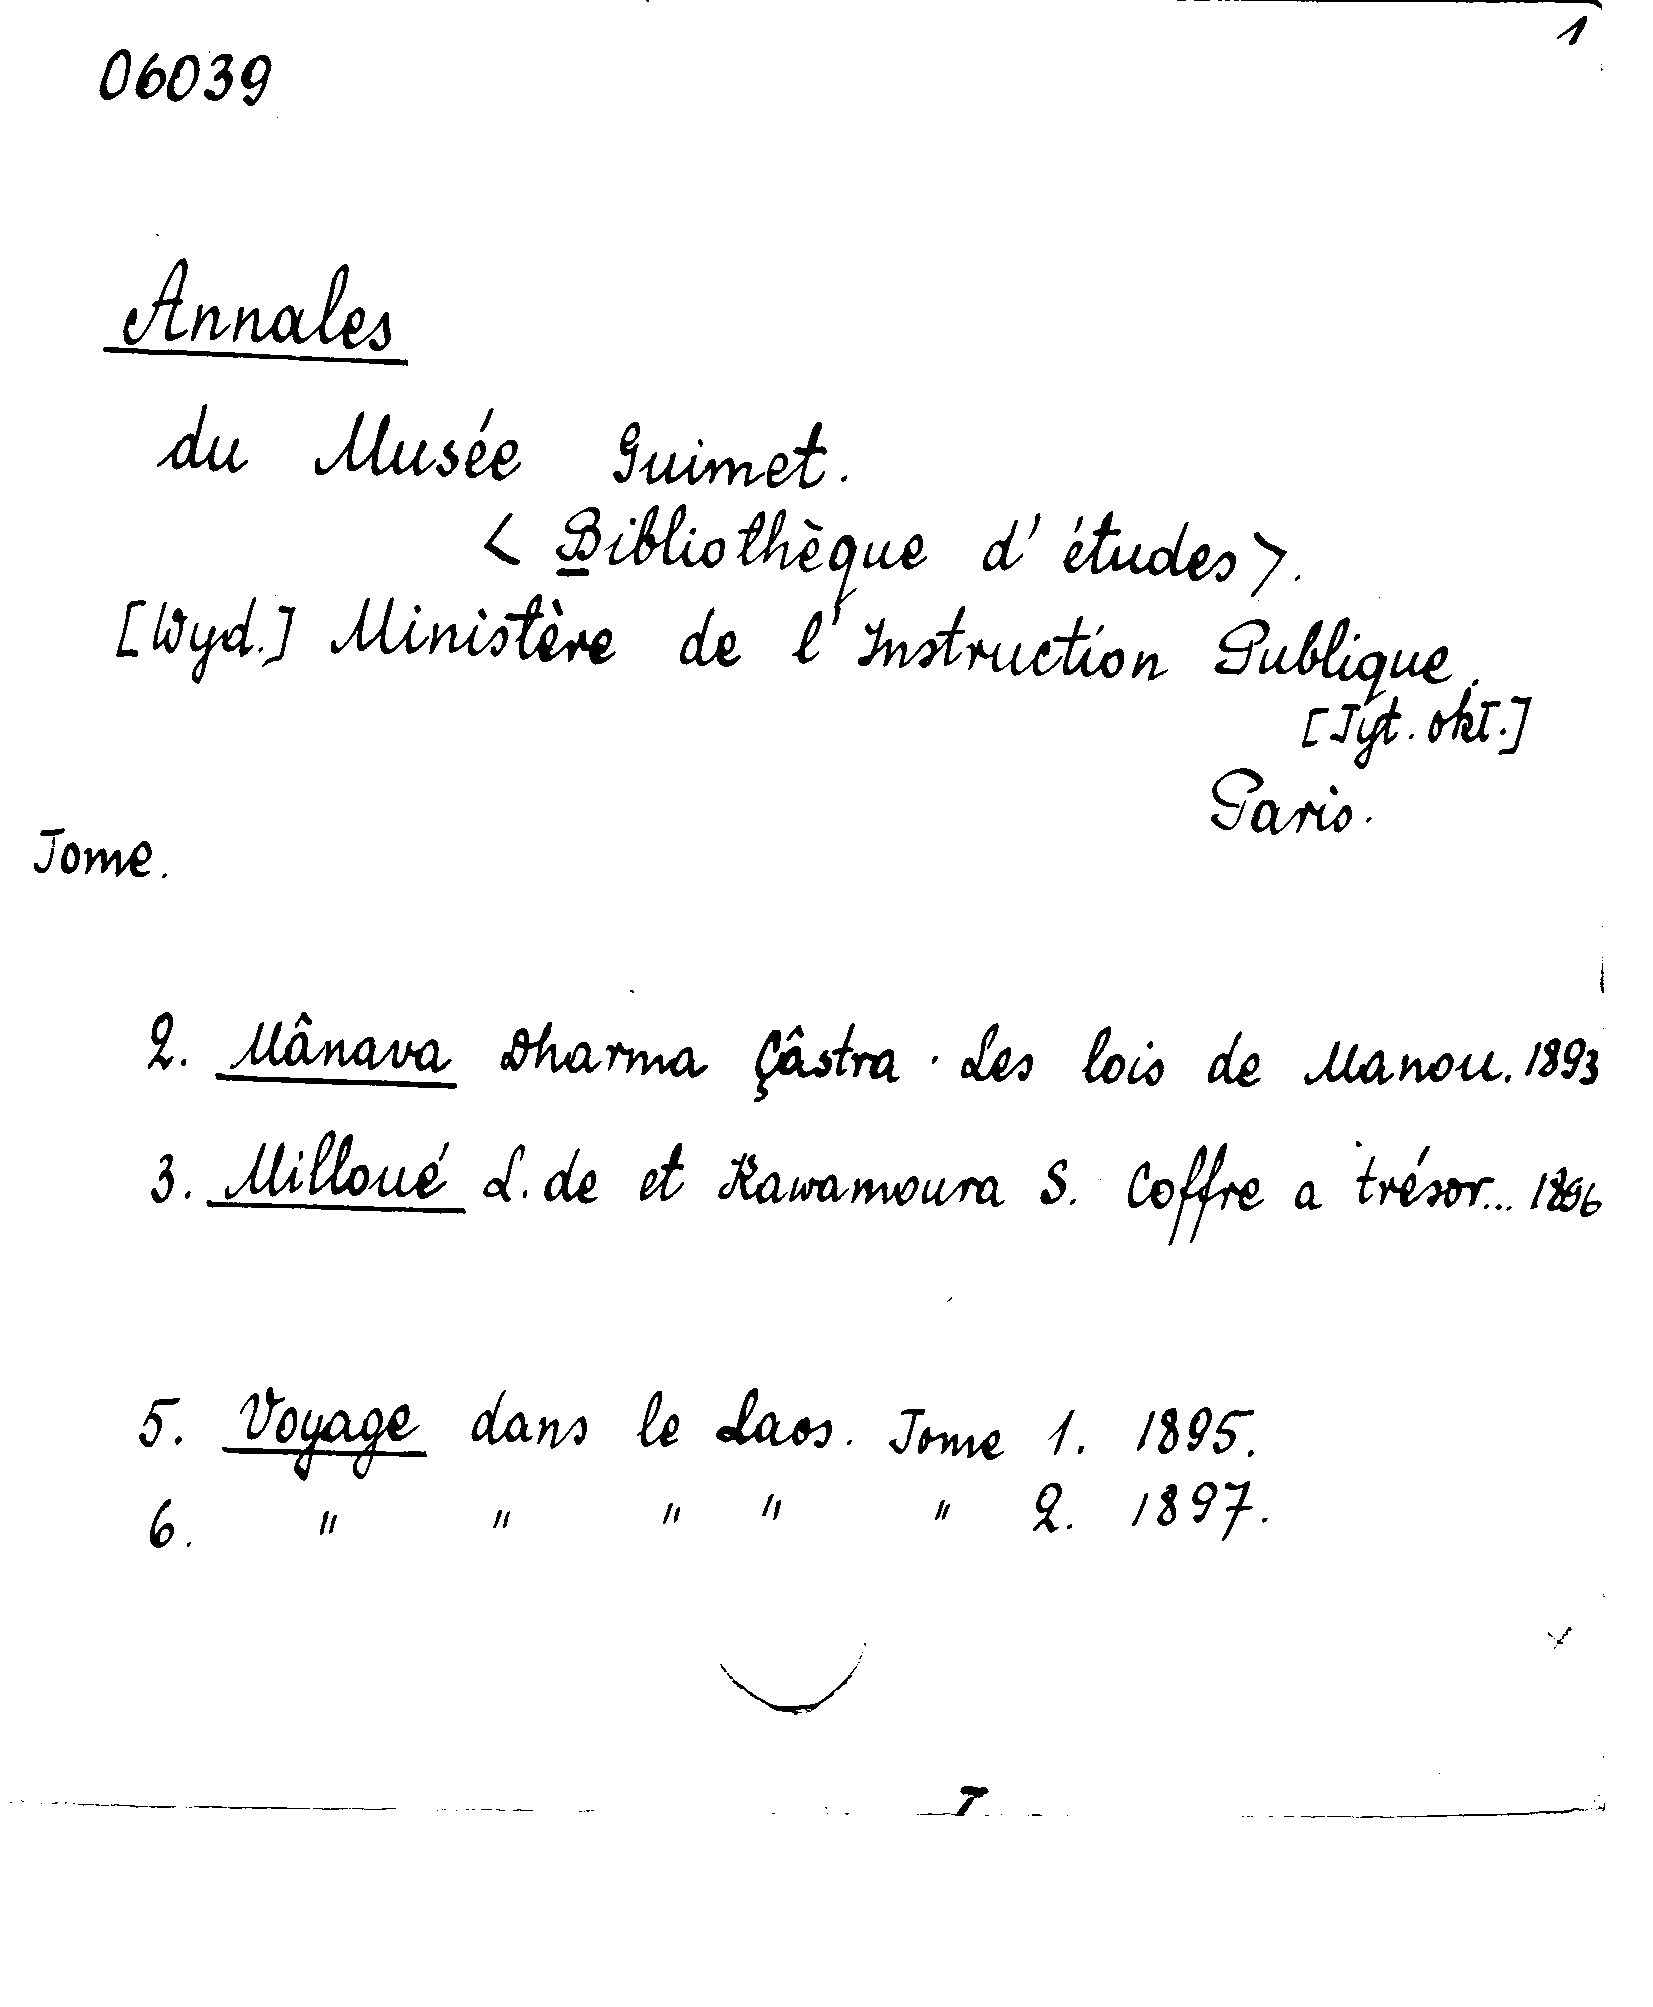 1
06039
Annales
du Musée Guimet.
< Bibliothèque d'études>.
[Wyd.] Ministère de l'Instruction Publique.
[Tyt. okł.]
Paris.
Tome.
2. Mânava Dharma Çâstra. Les lois de Manou. 1893
3. Milloué L. de et Kawamoura S. Coffre a trésor... 1896
5. Voyage dans le Laos. Tome 1. 1895.
6. " " " " " 2. 1897.
T